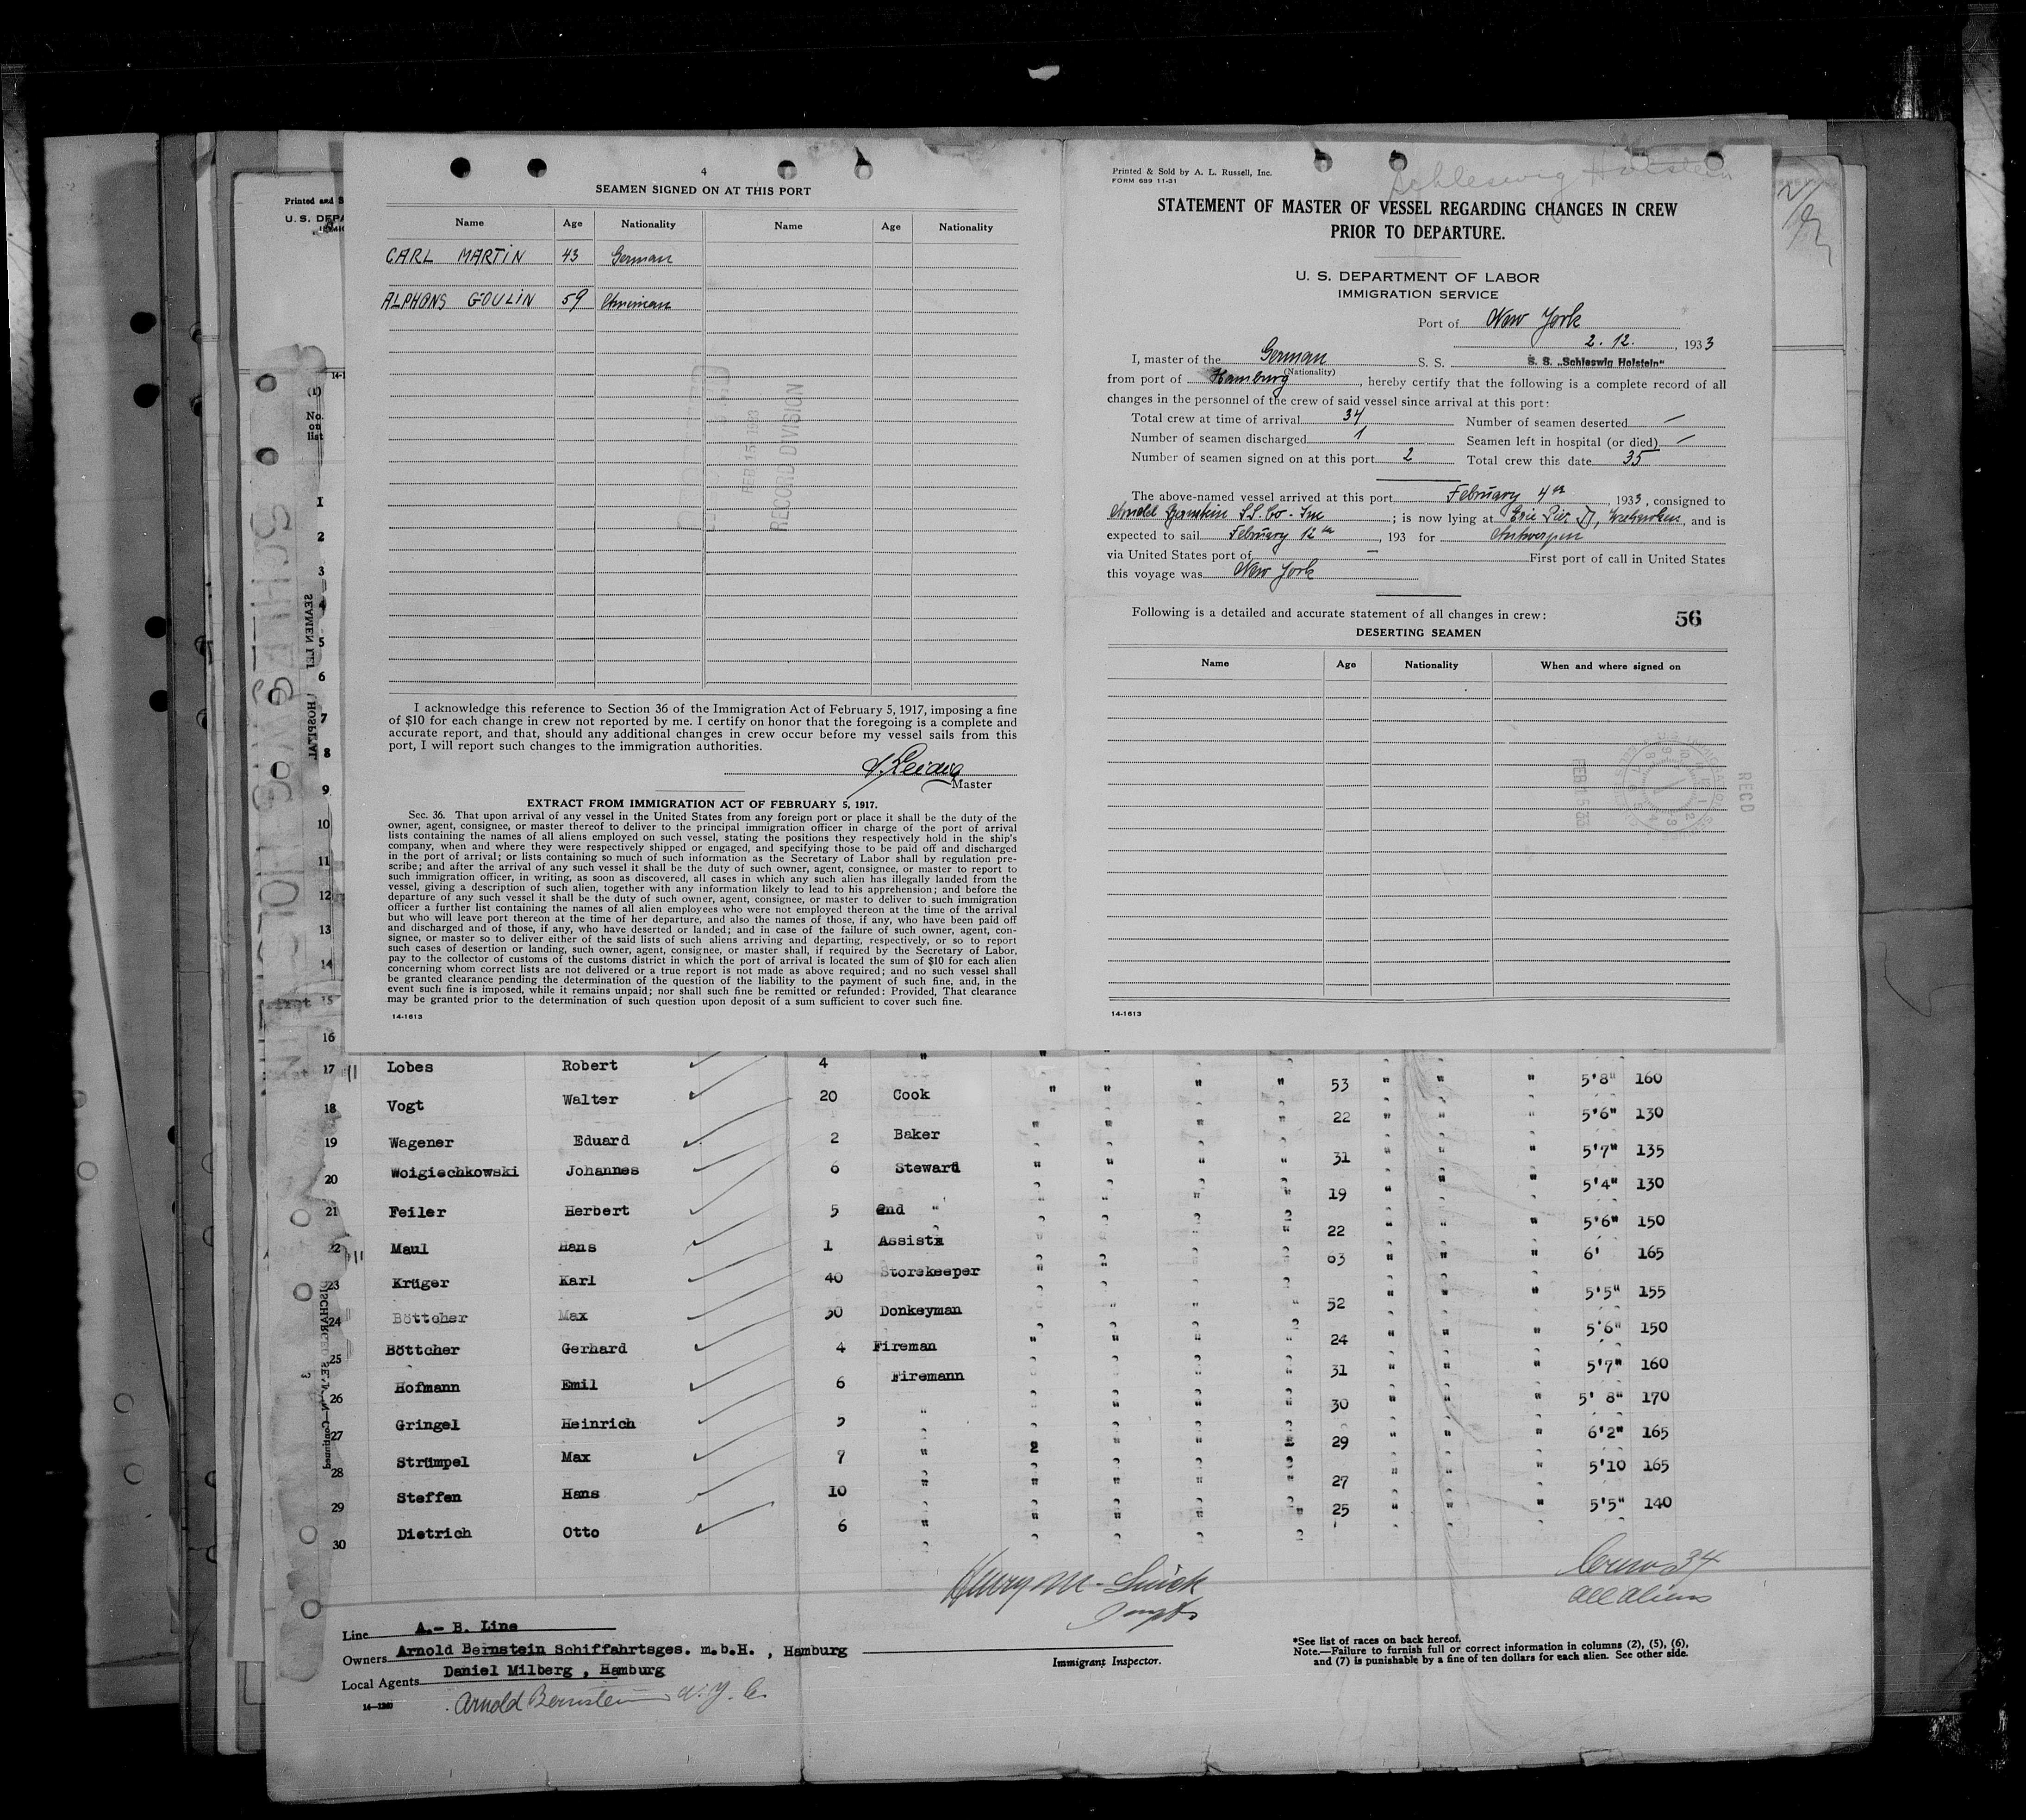 4
SEAMEN SIGNED ON AT THIS PORT
Name Age Nationality Name Age Nationality
CARL MARTIN 43 German
ALPHONS GOULIN 59
FEB 15 1933
RECORD DIVISION
I acknowledge this reference to Section 36 of the Immigration Act of February 5, 1917, imposing a fine
of $10 for each change in crew not reported by me. I certify on honor that the foregoing is a complete and
accurate report, and that, should any additional changes in crew occur before my vessel sails from this
port, I will report such changes to the immigration authorities.
Master
EXTRACT FROM IMMIGRATION ACT OF FEBRUARY 5, 1917.
Sec. 36. That upon arrival of any vessel in the United States from any foreign port or place it shall be the duty of the
owner, agent, consignee, or master thereof to deliver to the principal immigration officer in charge of the port of arrival
lists containing the names of all aliens employed on such vessel, stating the positions they respectively hold in the ship's
company, when and where they were respectively shipped or engaged, and specifying those to be paid off and discharged
in the port of arrival; or lists containing so much of such information as the Secretary of Labor shall by regulation pre-
scribe; and after the arrival of any such vessel it shall be the duty of such owner, agent, consignee, or master to report to
such immigration officer, in writing, as soon as discovered, all cases in which any such alien has illegally landed from the
vessel, giving a description of such alien, together with any information likely to lead to his apprehension; and before the
departure of any such vessel it shall be the duty of such owner, agent, consignee, or master to deliver to such immigration
officer a further list containing the names of all alien employees who were not employed thereon at the time of the arrival
but who will leave port thereon at the time of her departure, and also the names of those, if any, who have been paid off
and discharged and of those, if any, who have deserted or landed; and in case of the failure of such owner, agent, con-
signee, or master so to deliver either of the said lists of such aliens arriving and departing, respectively, or so to report
such cases of desertion or landing, such owner, agent, consignee, or master shall, if required by the Secretary of Labor,
pay to the collector of customs of the customs district in which the port of arrival is located the sum of $10 for each alien
concerning whom correct lists are not delivered or a true report is not made as above required; and no such vessel shall
be granted clearance pending the determination of the question of the liability to the payment of such fine, and, in the
event such fine is imposed, while it remains unpaid; nor shall such fine be remitted or refunded: Provided, That clearance
may be granted prior to the determination of such question upon deposit of a sum sufficient to cover such fine.
14-1613
Printed & Sold by A. L. Russell, Inc.
FORM 689 11-31
Schleswig Holstein
STATEMENT OF MASTER OF VESSEL REGARDING CHANGES IN CREW
PRIOR TO DEPARTURE.
U. S. DEPARTMENT OF LABOR
IMMIGRATION SERVICE
Port of New York
2. 12. , 1933
I, master of the German S. S. S. S. „Schleswig Holstein"
(Nationality)
from port of Hamburg , hereby certify that the following is a complete record of all
changes in the personnel of the crew of said vessel since arrival at this port:
Total crew at time of arrival 34 Number of seamen deserted —
Number of seamen discharged 1 Seamen left in hospital (or died) —
Number of seamen signed on at this port 2 Total crew this date 35
The above-named vessel arrived at this port February 4th , 1933, consigned to
Arnold Bernstein S.S. Co. Inc ; is now lying at Erie Pier D, Weehawken, and is
expected to sail February 12th , 193 for Antwerpen
via United States port of — First port of call in United States
this voyage was New York
Following is a detailed and accurate statement of all changes in crew:
56
DESERTING SEAMEN
Name Age Nationality When and where signed on
FEB 15 33
RECD
14-1613
Printed and S
U. S. DEPA
14-1
(1)
No.
on
list
1
2
3
4
5
6
7
8
9
10
11
12
13
14
15
16
17 Lobes Robert 4 " " "
18 Vogt Walter 20 Cook " " " " 53 " " " 5'8" 160
19 Wagener Eduard 2 Baker " " " " 22 " " " 5'6" 130
20 Woigiechkowski Johannes 6 Steward " " " " 31 " " " 5'7" 135
21 Feiler Herbert 5 2nd " " " " " 19 " " " 5'4" 130
22 Maul Hans 1 Assistn " " " " 22 " " " 5'6" 150
23 Krüger Karl 40 Storekeeper " " " " 63 " " " 6' 165
24 Böttcher Max 30 Donkeyman " " " " 52 " " " 5'5" 155
25 Böttcher Gerhard 4 Fireman " " " " 24 " " " 5'6" 150
26 Hofmann Emil 6 Firemann " " " " 31 " " " 5'7" 160
27 Gringel Heinrich 5 " " " " " 30 " " " 5' 8" 170
28 Strümpel Max 7 " " " " " 29 " " " 6'2" 165
29 Steffen Hans 10 " " " " " 27 " " " 5'10 165
30 Dietrich Otto 6 " " " " " 25 " " " 5'5" 140
Crew 34
all aliens
Line A.- B. Line
Owners Arnold Bernstein Schiffahrtsges. m.b.H. , Hamburg
Local Agents Daniel Milberg , Hamburg
Arnold Bernstein N. Y. C.
14-1240
Immigrant Inspector.
*See list of races on back hereof.
Note.—Failure to furnish full or correct information in columns (2), (5), (6),
and (7) is punishable by a fine of ten dollars for each alien. See other side.